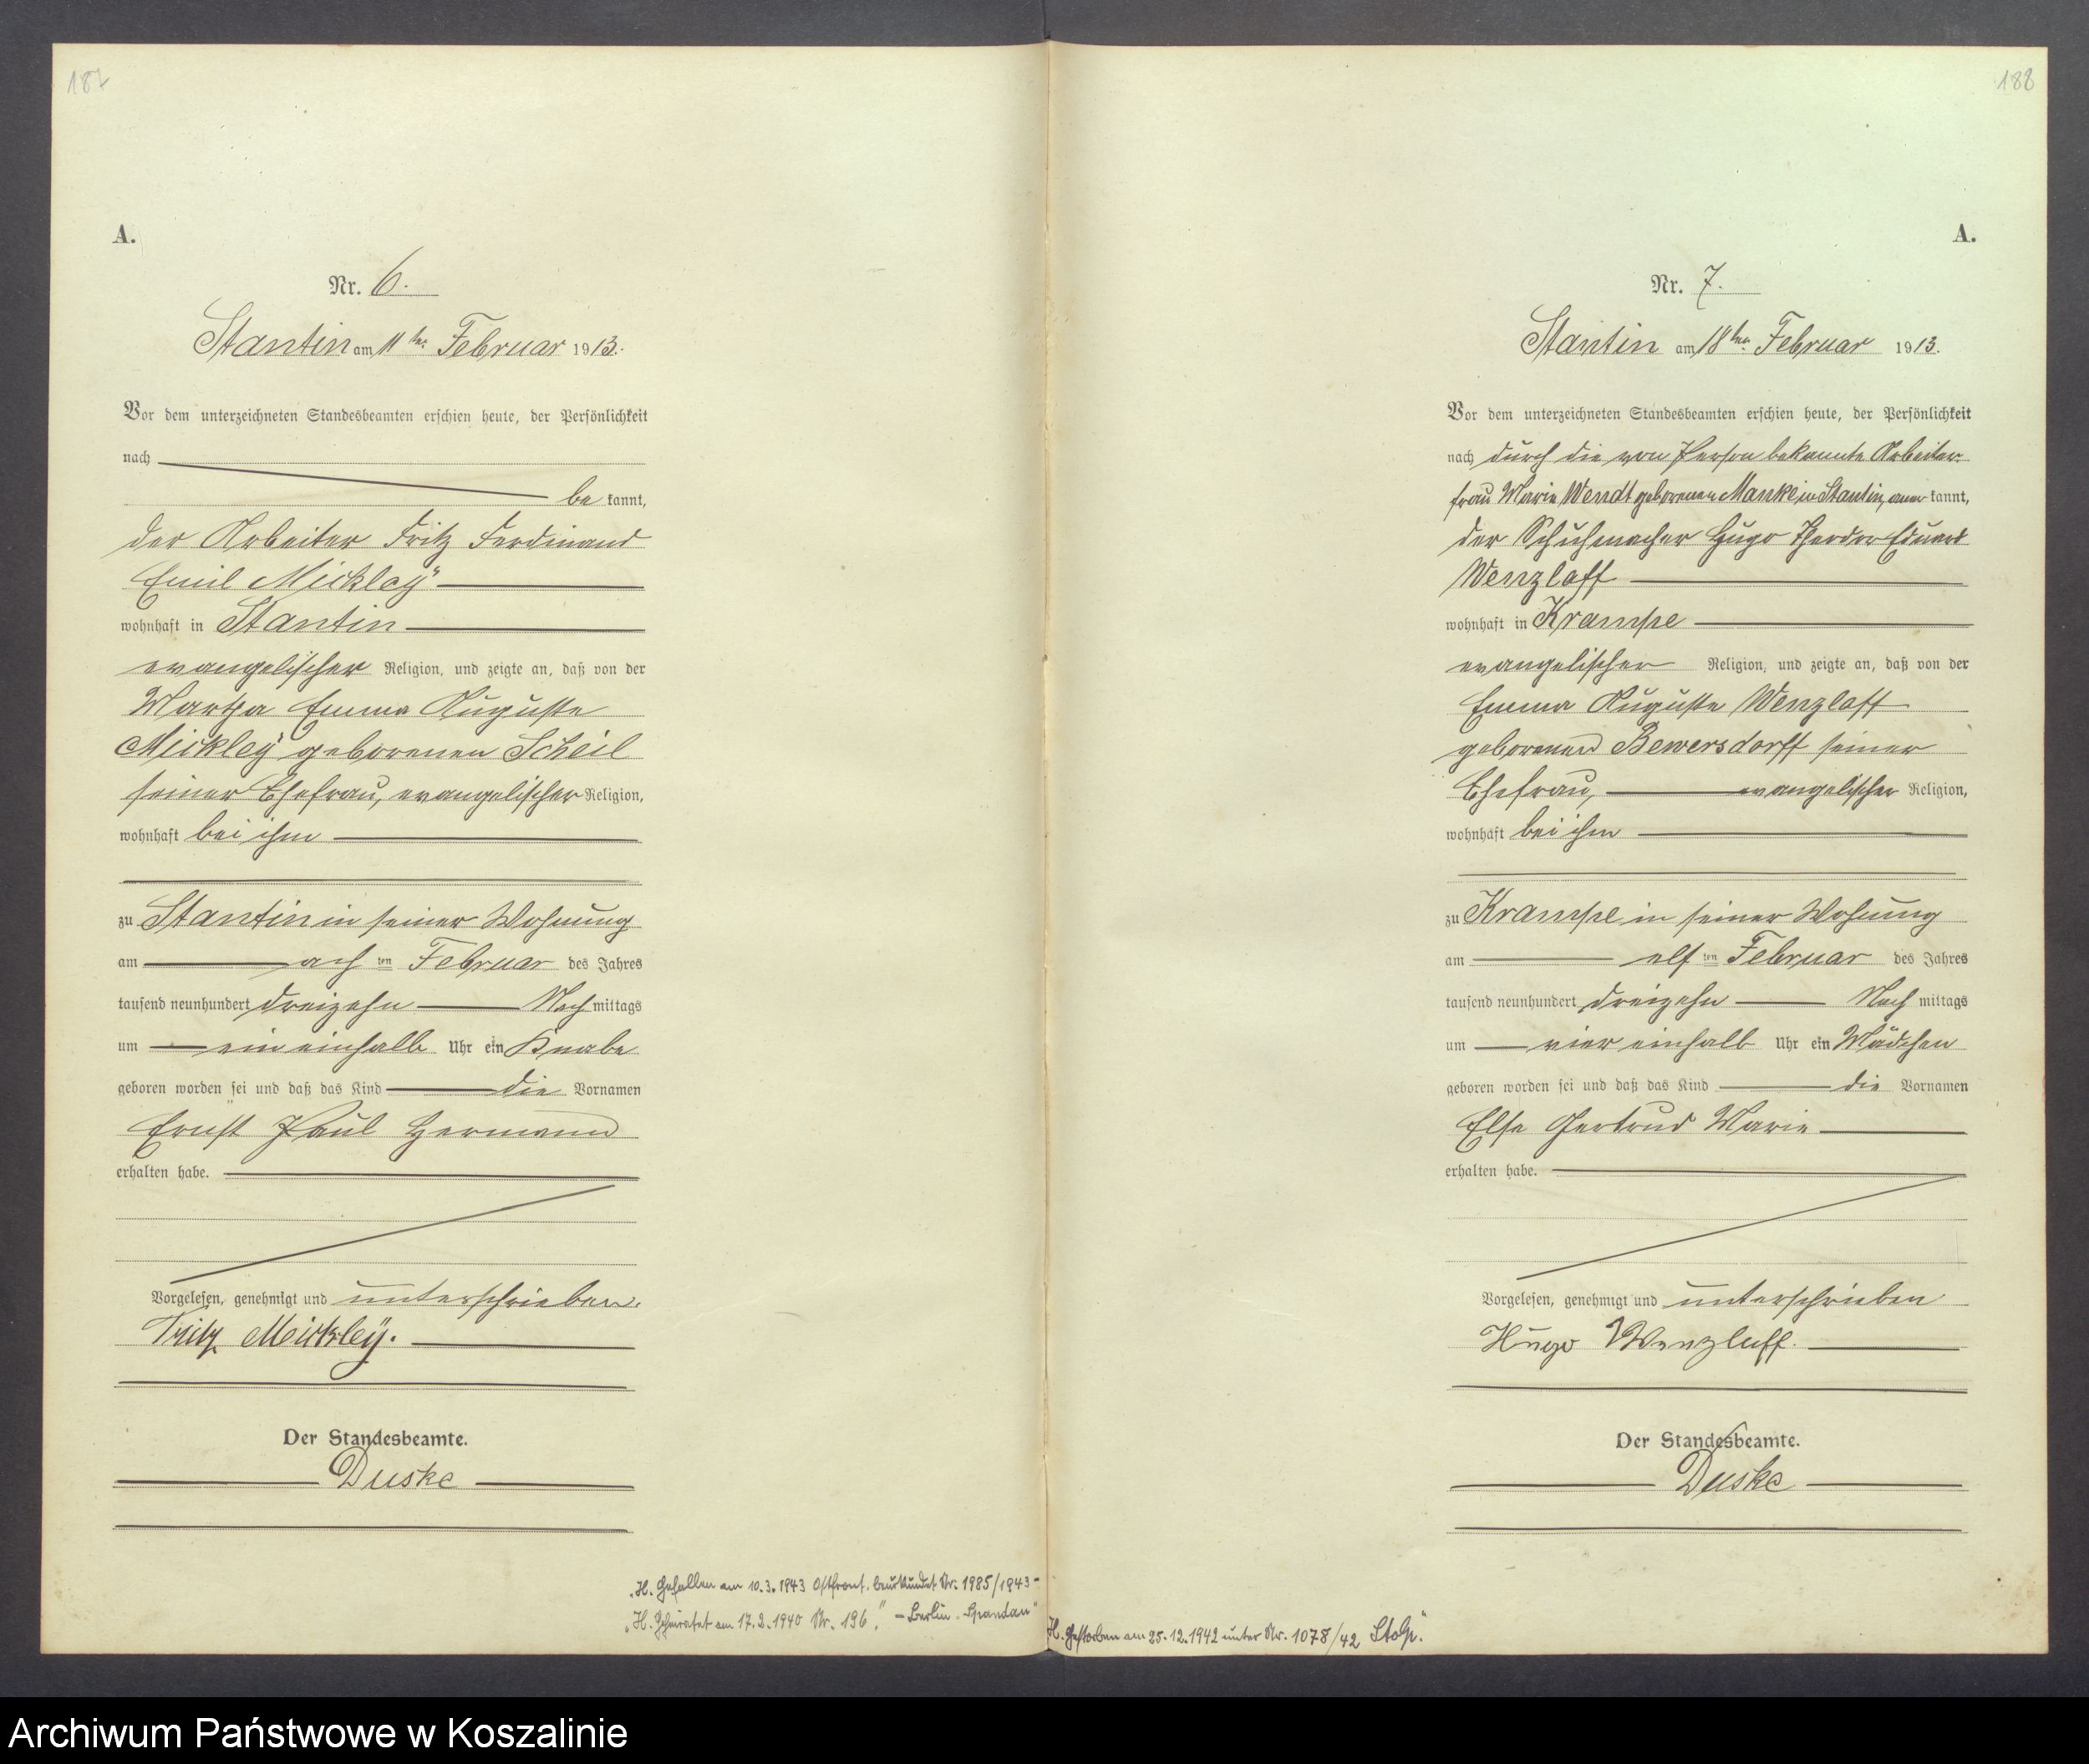 187
A.
Nr. 6.
Stantin am 11ten Februar 1913.
Vor dem unterzeichneten Standesbeamten erschien heute, der Persönlichkeit
nach
be kannt,
der Arbeiter Fritz Ferdinand
Emil Mickley
wohnhaft in Stantin
evangelischer Religion, und zeigte an, daß von der
Martha Emma Auguste
Mickley geborenen Scheil
seiner Ehefrau, evangelischer Religion,
wohnhaft bei ihm
zu Stantin in seiner Wohnung
am ach ten Februar des Jahres
tausend neunhundert dreizehn Nach mittags
um ein einhalb Uhr ein Knabe
geboren worden sei und daß das Kind die Vornamen
Ernst Paul Hermann
erhalten habe.
Vorgelesen, genehmigt und unterschrieben.
Fritz Mickley.
Der Standesbeamte.
Duske
„H. Gefallen am 10.3.1943 Ostfront. beurkundet Nr. 1985/1943 -
„H. Geheiratet am 17.2.1940 Nr. 196." - Berlin-Spandau"
188
A.
Nr. 7.
Stantin am 18ten Februar 1913.
Vor dem unterzeichneten Standesbeamten erschien heute, der Persönlichkeit
nach durch die von Person bekannte Arbeiter-
frau Marie Wendt geborenen Manke in Stantin, aner kannt,
der Schuhmacher Hugo Theodor Eduard
Wenzlaff
wohnhaft in Krampe
evangelischer Religion, und zeigte an, daß von der
Emma Auguste Wenzlaff
geborenen Bewersdorff seiner
Ehefrau, evangelischer Religion,
wohnhaft bei ihm
zu Krampe in seiner Wohnung
am elf ten Februar des Jahres
tausend neunhundert dreizehn Nach mittags
um vier einhalb Uhr ein Mädchen
geboren worden sei und daß das Kind die Vornamen
Else Gertrud Marie
erhalten habe.
Vorgelesen, genehmigt und unterschrieben
Hugo Wenzlaff.
Der Standesbeamte.
Duske
H. Gestorben am 25.12.1942 unter Nr. 1078/42 Stolp."
Archiwum Państwowe w Koszalinie